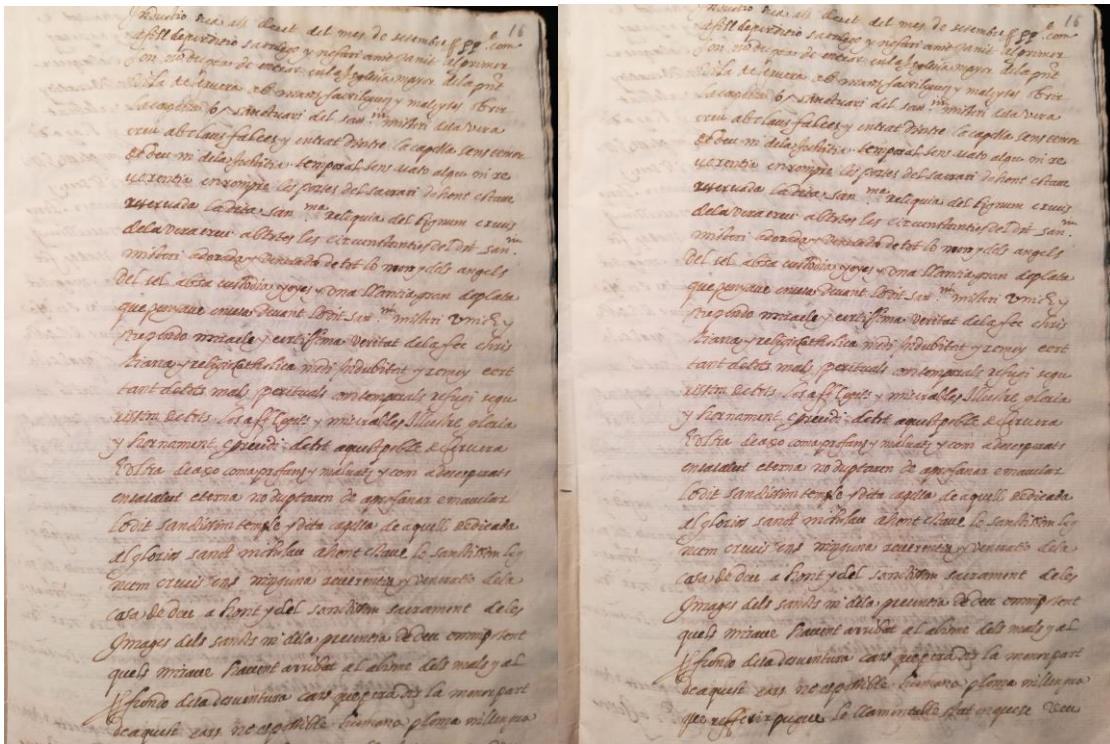 16
Industio sua als del mes de setembre com
a fill de perditio sacrilego y nefari anit
son no duptar de entrar en la Iglesia mayor de la pnt
vila de Cervera ab mans sacrilegues y malvases obrir
la capella o sanctuari del san.m misteri de la vera
creu ab claus falces y entrat dintre la capella sens temor
de deu ni de la justitia temporal sens acato algu ni re
verentia en rompre les portes del sacrari de hont estave
reservada la dita san.ma reliquia del lignum crucis
de la vera creu ab totes les circunstanties del dit san.m
misteri adorada y venerada de tot lo mon y dels angels
del sel ab sa custodia y una llantia gran de plata
que penjave devant lo dit san.m misteri unich y
probado miracle y certissima veritat de la fee chris
tiana y religio catholica indubitat y remey cert
tant de tots mals spirituals com temporals refugi segu
rissim de tots los affligits y miserables Illustre gloria
y hornament de tot aquest poble de Cervera
E ultra de axo com a profans y malvats y com a desesperats
en sa salut eterna no duptaren de aprofanar e macular
lo dit sanctissim temple y dita capella de aquell dedicada
al glorios sanct nicholau ahont estave lo sanctissim lig
num crucis sens ninguna reverentia y veneratio de la
casa de deu a hont y del sanctissim sacrament de les
Images dels sancts ni de la presentia de deu omnipotent
quels mirave havent arribat al abisme dels mals y al
profundo de la desventura cars que per a dir la menor part
de aquest cars no es possible humana ploma ni llengua
16
Industio sua als del mes de setembre com
a fill de perditio sacrilego y nefari anit
son no duptar de entrar en la Iglesia mayor de la pnt
vila de Cervera ab mans sacrilegues y malvases obrir
la capella o sanctuari del san.m misteri de la vera
creu ab claus falces y entrat dintre la capella sens temor
de deu ni de la justitia temporal sens acato algu ni re
verentia en rompre les portes del sacrari de hont estave
reservada la dita san.ma reliquia del lignum crucis
de la vera creu ab totes les circunstanties del dit san.m
misteri adorada y venerada de tot lo mon y dels angels
del sel ab sa custodia y una llantia gran de plata
que penjave devant lo dit san.m misteri unich y
probado miracle y certissima veritat de la fee chris
tiana y religio catholica indubitat y remey cert
tant de tots mals spirituals com temporals refugi segu
rissim de tots los affligits y miserables Illustre gloria
y hornament de tot aquest poble de Cervera
E ultra de axo com a profans y malvats y com a desesperats
en sa salut eterna no duptaren de aprofanar e macular
lo dit sanctissim temple y dita capella de aquell dedicada
al glorios sanct nicholau ahont estave lo sanctissim lig
num crucis sens ninguna reverentia y veneratio de la
casa de deu a hont y del sanctissim sacrament de les
Images dels sancts ni de la presentia de deu omnipotent
quels mirave havent arribat al abisme dels mals y al
profundo de la desventura cars que per a dir la menor part
de aquest cars no es possible humana ploma ni llengua
que refferir pugue lo llamentable stat en que se veu